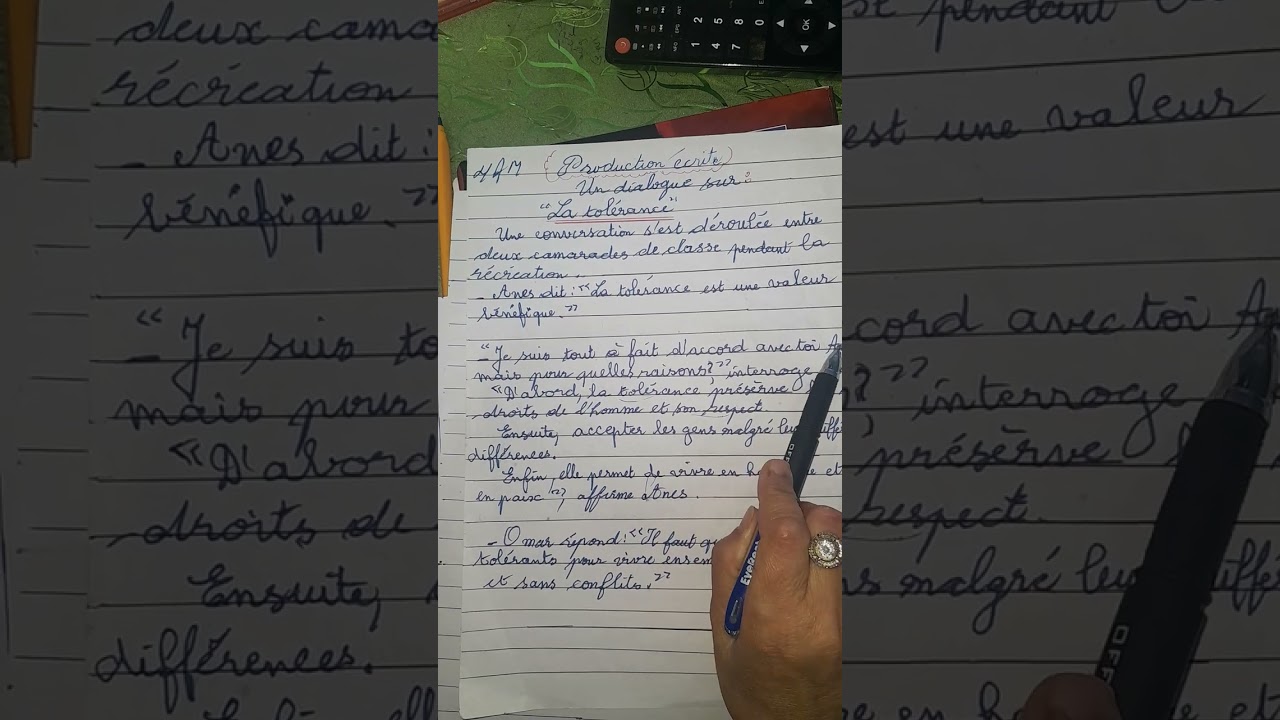 4AM (Production écrite)
Un dialogue sur:
"La tolérance"
Une conversation s'est déroulée entre
deux camarades de classe pendant la
récréation.
- Anes dit: "La tolérance est une valeur
bénéfique."
"- Je suis tout à fait d'accord avec toi
mais pour quelles raisons?" interroge
"D'abord, la tolérance présèrve
droits de l'homme et son respect.
Ensuite, accepter les gens malgré
différences.
Enfin, elle permet de vivre en et
en paix", affirme Anes.
- Omar répond: "Il faut
tolérants pour vivre
et sans conflits."
EVEROFF